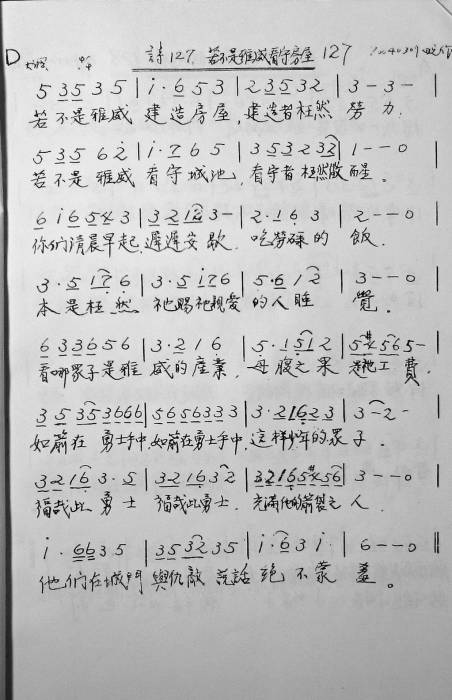 D 詩127. 若不是雅威看守房屋 127
5 35 3 5 | i · 6 5 3 | 2 35 3 2 | 3 - 3 - |
若不是雅威 建造房屋, 建造者枉然 勞力.
5 35 5 6 2 | i · 7 6 5 | 3 5 3 2 32 | 1 - - 0 |
若不是雅威 看守城池, 看守者枉然
6 i 6 5 4 3 | 3 2 12 3 - | 2 · 1 6 3 | 2 - - 0 |
你們清晨早起, 遲遲安歇, 吃勞碌的 飯.
3 · 5 i 7 6 | 3 · 5 i 7 6 | 5 · 6 i 2 | 3 - - 0 |
本是枉然 祂賜祂親愛的人睡 覺.
6 3 3 6 5 6 | 3 · 2 1 6 | 5 · 1 5 1 2 |
看哪眾子是雅 威的產業, 母腹之果 是祂工 費.
3 5 3 5 3 6 6 6 | 5 6 5 6 3 3 3 | 3 · 2 1 6 2 3 | 3 - 2 - |
如箭在 勇士手中, 如箭在勇士手中, 這樣少年的眾子.
3 2 1 6 3 · 5 | 3 2 1 6 3 2 | | 3 - - 0 |
福哉此 勇士 福哉此勇士. 充滿他的箭袋之人
i · 6 6 3 5 | 3 5 3 2 3 5 | i · 6 3 i | 6 - - 0 ||
他們在城門 與仇敵 說話 絕 不蒙 羞。